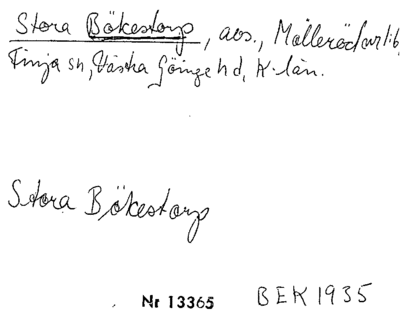 Stora Bökestorp, avs., Mölleröd
Finja sn, Västra Göinge hd, K-län.
Stora Bökestorp
Nr 13365 BEK 1935